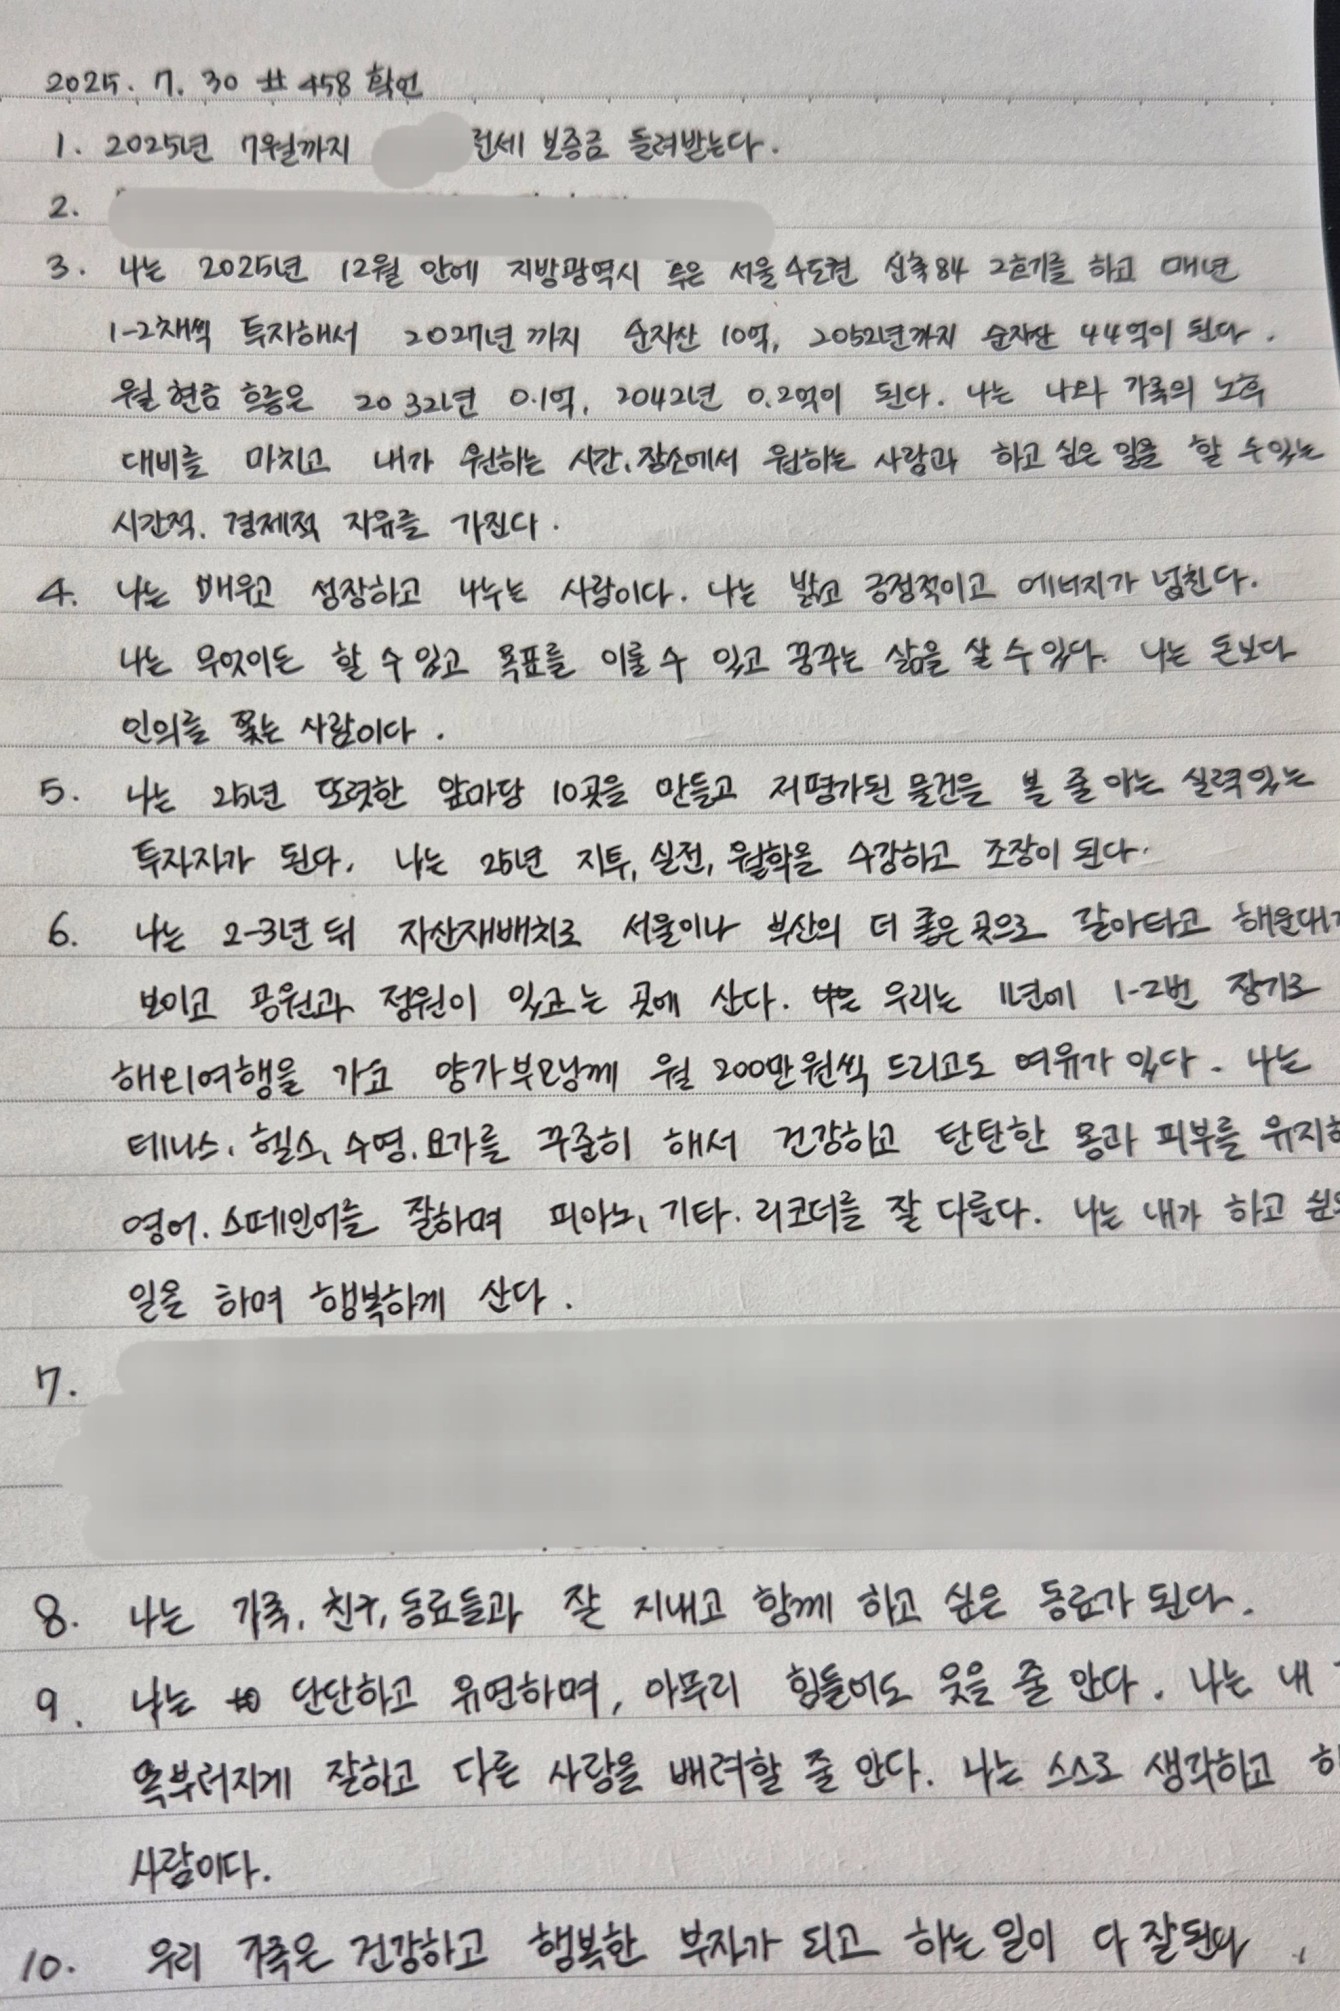 2025. 7. 30 # 458 확언
1. 2025년 7월까지 전세 보증금 돌려받는다.
2.
3. 나는 2025년 12월 안에 지방광역시 혹은 서울수도권 신축84 2호기를 하고 매년
1-2채씩 투자해서 2027년까지 순자산 10억, 2052년까지 순자산 44억이 된다.
월 현금 흐름은 2032년 0.1억, 2042년 0.2억이 된다. 나는 나와 가족의 노후
대비를 마치고 내가 원하는 시간, 장소에서 원하는 사람과 하고 싶은 일을 할 수 있는
시간적, 경제적 자유를 가진다.
4. 나는 배우고 성장하고 나누는 사람이다. 나는 밝고 긍정적이고 에너지가 넘친다.
나는 무엇이든 할 수 있고 목표를 이룰 수 있고 꿈꾸는 삶을 살 수 있다. 나는 돈보다
인의를 쫓는 사람이다.
5. 나는 25년 또렷한 앞마당 10곳을 만들고 저평가된 물건을 볼 줄 아는 실력있는
투자자가 된다. 나는 25년 지투, 실전, 월학을 수강하고 조장이 된다.
6. 나는 2-3년 뒤 자산재배치로 서울이나 부산의 더 좋은 곳으로 갈아타고 해운대가
보이고 공원과 정원이 있는 곳에 산다. 우리는 1년에 1-2번 장기로
해외여행을 가고 양가부모님께 월 200만원씩 드리고도 여유가 있다. 나는
테니스, 헬스, 수영, 요가를 꾸준히 해서 건강하고 탄탄한 몸과 피부를 유지하
영어, 스페인어를 잘하며 피아노, 기타, 리코더를 잘 다룬다. 나는 내가 하고 싶은
일을 하며 행복하게 산다.
7.
8. 나는 가족, 친구, 동료들과 잘 지내고 함께 하고 싶은 동료가 된다.
9. 나는 단단하고 유연하며, 아무리 힘들어도 웃을 줄 안다. 나는 내
똑부러지게 잘하고 다른 사람을 배려할 줄 안다. 나는 스스로 생각하고 하
사람이다.
10. 우리 가족은 건강하고 행복한 부자가 되고 하는 일이 다 잘된다.